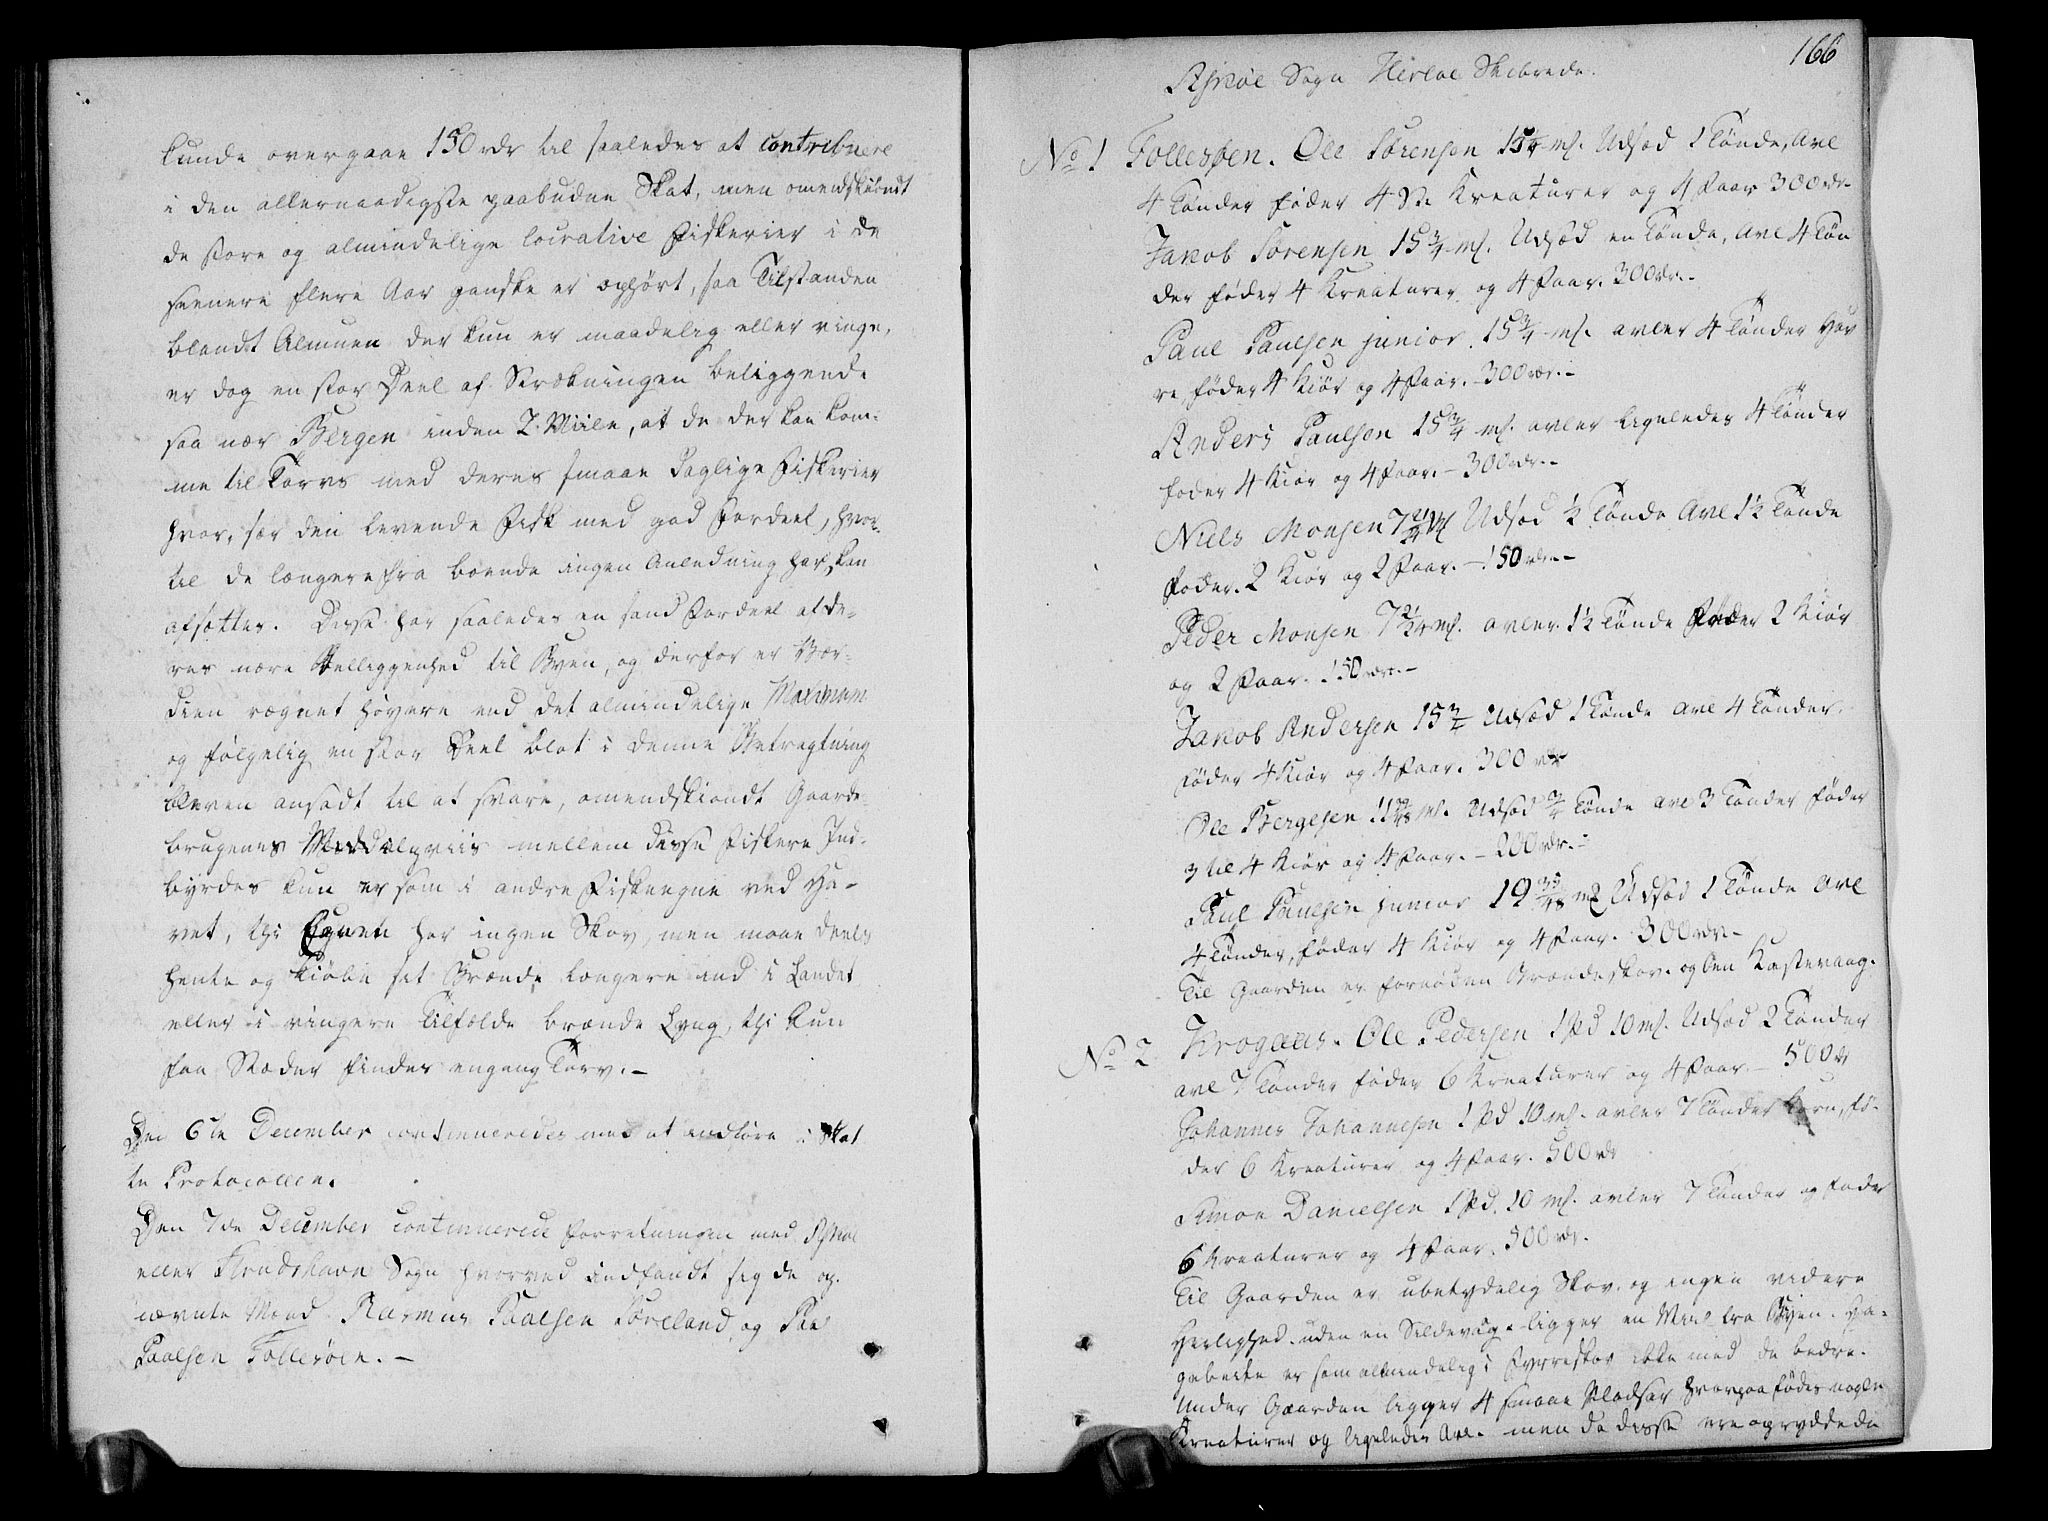 kunde overgaae 150 rdr til saaledes at contribuere
i den allernaadigste paabudne Skat, men omendskiøndt
de store og almindelige lucrative Fiskerier i de
seenere flere Aar ganske er ophørt, saa Tilstanden
blandt Almuen der kun er maadelig eller ringe,
er dog en stor Deel af Strækningen beliggende
saa nær Bergen inden 2 Miile, at de der kan kom-
me til Torvs med deres smaae daglige Fiskerier
hvor, før den levende Fisk med god Fordeel, hvor-
til de længere fra boende ingen Anledning har, kan
afsættes. Disse har saaledes en sand Fordeel af de-
res nære Beliggenhed til Byen, og derfor er Vær-
dien regnet høyere end det almindelige Maximum
og følgelig en stor Deel blot i denne Betragtning
bleven ansadt til at svare, omendskiøndt Gaards-
brugenes Middelpriis mellem disse Fiskere Ind-
byrdes kun er som i andre Fiskeegne ved Ha-
vet, thi Egnen har ingen Skov, men maae deels
hente og kiøbe sit Brænde længere ind i Landet
eller i ringere Tilfælde brænde Lyng, thi kun
faa Stæder findes engang Torv. -
Den 6te December continueredes med at indføre i Skat
te Protocollen.
Den 7de December continuerede Forretningen med Askøe
eller Strudshavn Sogn hvorved indfandt sig de op-
nævnte Mænd Rasmus Paalsen Søreland og Poul
Paalsen Follesøen. -
166
Askøe Sogn Herløe Skibrede.
No 1 Follesøen. Ole Sørensen 15¾ mf. Udsæd 1 Tønde, Avl
4 Tønder føder 4 St. Kreaturer og 4 Faar 300 rdr.-
Jakob Sørensen 15¾ mf. Udsæd en Tønde, Avl 4 Tøn
der føder 4 Kreaturer og 4 Faar. 300 rdr.-
Paul Paulsen junior. 15¾ mf. avler 4 Tønder Hav
re, føder 4 Kiør og 4 Faar. - 300 rdr.-
Anders Paulsen 15¾ mf. avler ligeledes 4 Tønder
føder 4 Kiør og 4 Faar. - 300 rdr.-
Niels Monsen 7 21/24 mf Udsæd ½ Tønde Avl 1½ Tønde
føder 2 Kiør og 2 Faar. - 150 rdr.-
Peder Monsen 7 21/24 mf. avler 1½ Tønde føder 2 Kiør
og 2 Faar. 150 rdr.-
Jakob Andersen 15¾ Udsæd 1 Tønde avl 4 Tønder.
føder 4 Kiør og 4 Faar. 300 rdr
Ole Børgesen mf. Udsæd ¾ Tønde avl 3 Tønder føder
3 til 4 Kiør og 4 Faar. - 200 rdr.-
Paul Paulsen junior 19 33/48 mf Udsæd 1 Tønde Avl
4 Tønder, føder 4 Kiør og 4 Faar. 300 rdr.-
Til Gaarden er fornøden Brændeskov. og en Kastevaag.
No 2 Krogaas. Ole Pedersen 1 Pd 10 mf. Udsæd 2 Tønder
avl 7 Tønder føder 6 Kreaturer og 4 Faar. - 500 rdr
Johannes Johannesen 1 Pd 10 mf. avler 7 Tønder Korn, fø-
der 6 Kreaturer og 4 Faar. 500 rdr
Simon Danielsen 1 Pd. 10 mf. avler 7 Tønder og føder
6 Kreaturer og 4 Faar. 500 rdr.
Til Gaarden er ubetydelig Skov. og ingen videre
Herlighed. uden en Sildevaag. ligger en Miil fra Byen. Ha-
gebeite er som almindelig i Fyrreskov ikke med de bedre.
Under Gaarden ligger 4 smaae Pladser hvorpaa fødes nogle
Kreaturer og ligeledes Avl. men da disse ere opryddede